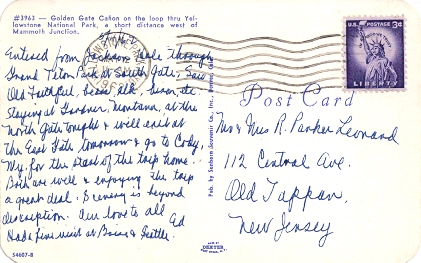 #3963 — Golden Gate Cañon on the loop thru Yel-
lowstone National Park, a short distance west of
Mammoth Junction.
Entered from Jackson Hole through
Grand Teton Park at South Gate, Saw
Old Faithful, bears, elk, bison, etc.
Staying at Gardner, Montana, at the
North Gate tonight & will exit at
the East Gate tomorrow & go to Cody,
Wy. for the start of the trip home.
Both are well & enjoying the trip
a great deal. Scenery is beyond
description. Our love to all
Ed
Had a fine visit at Boise & Seattle
54607-B
Pub. by Sanborn Souvenir Co., Inc., Denver, Colo.
MADE BY
DEXTER
U.S. POSTAGE 3¢
LIBERTY
Post Card
Mr & Mrs R. Parker Leonard
112 Central Ave.
Old Tappan,
New Jersey